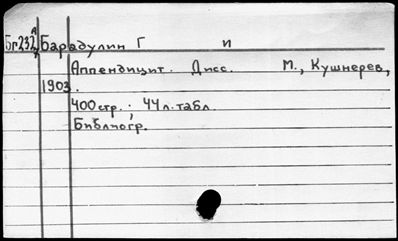 Бг232 А/7 Барадулин Г И
Аппендицит. Дисс. М., Кушнерев,
1903.
400 стр.; 44 л. табл.
Библиогр.